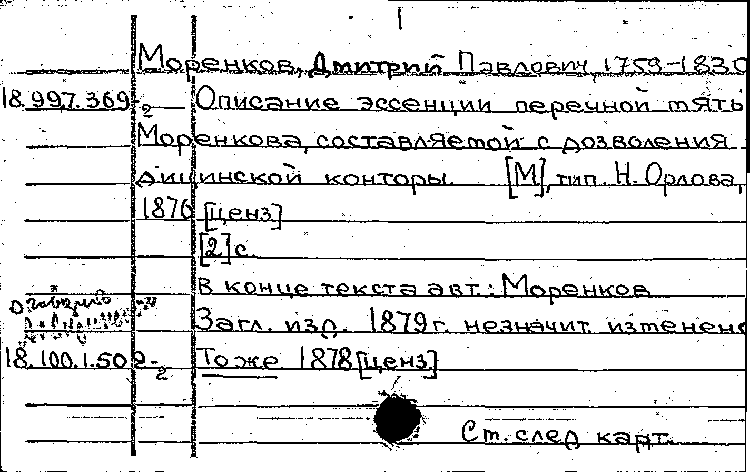 1
Моренков, Дмитрий Павлович, 1759-1830
18.997.369-2 Описание эссенции перечной мять
Моренкова, составляемой с дозволения
дицинской конторы. [М], тип. Н. Орлова,
1876 [ценз]
[2] с.
В конце текста авт.: Моренков
Загл. изд. 1879 г. незначит. изменено
18.100.1.502-2 То же 1878 [ценз]
См. след карт.